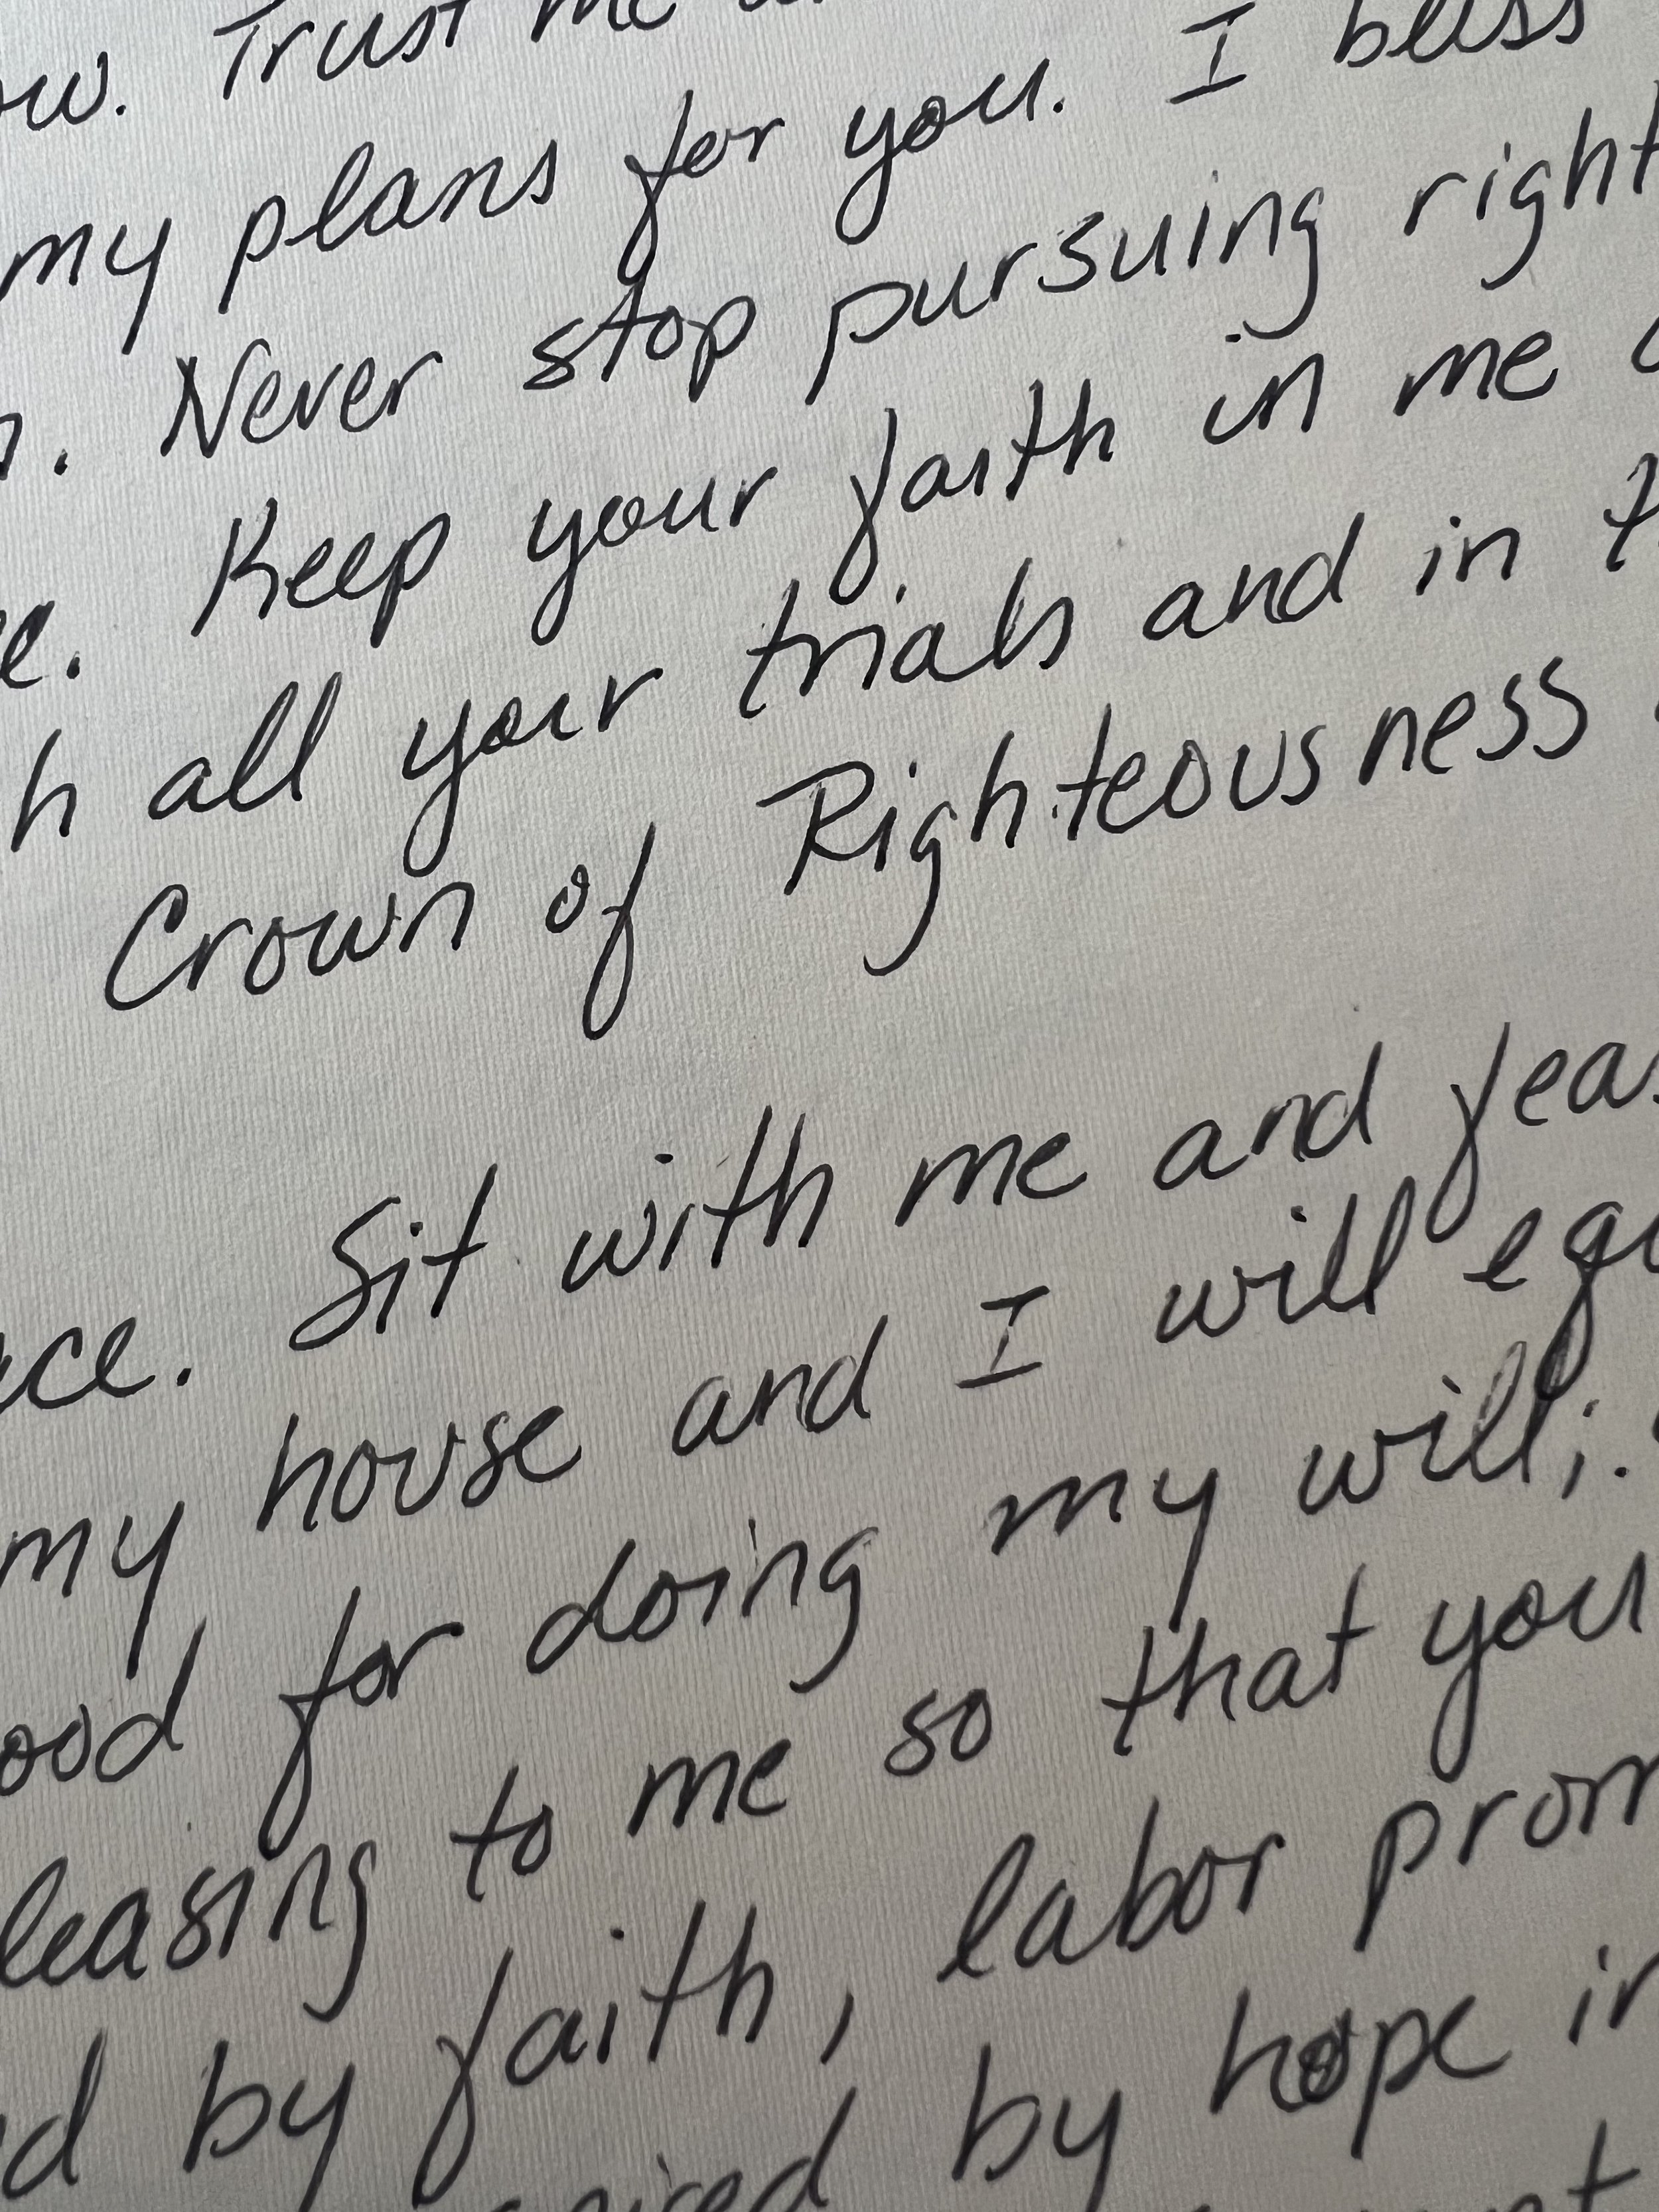 ow. Trust me
my plans for you. I bless
n. Never stop pursuing right
e. Keep your faith in me
h all your trials and in t
Crown of Righteousness
ce. Sit with me and feas
my house and I will equ
ood for doing my will;
leasing to me so that you
d by faith, labor prom
pired by hope in